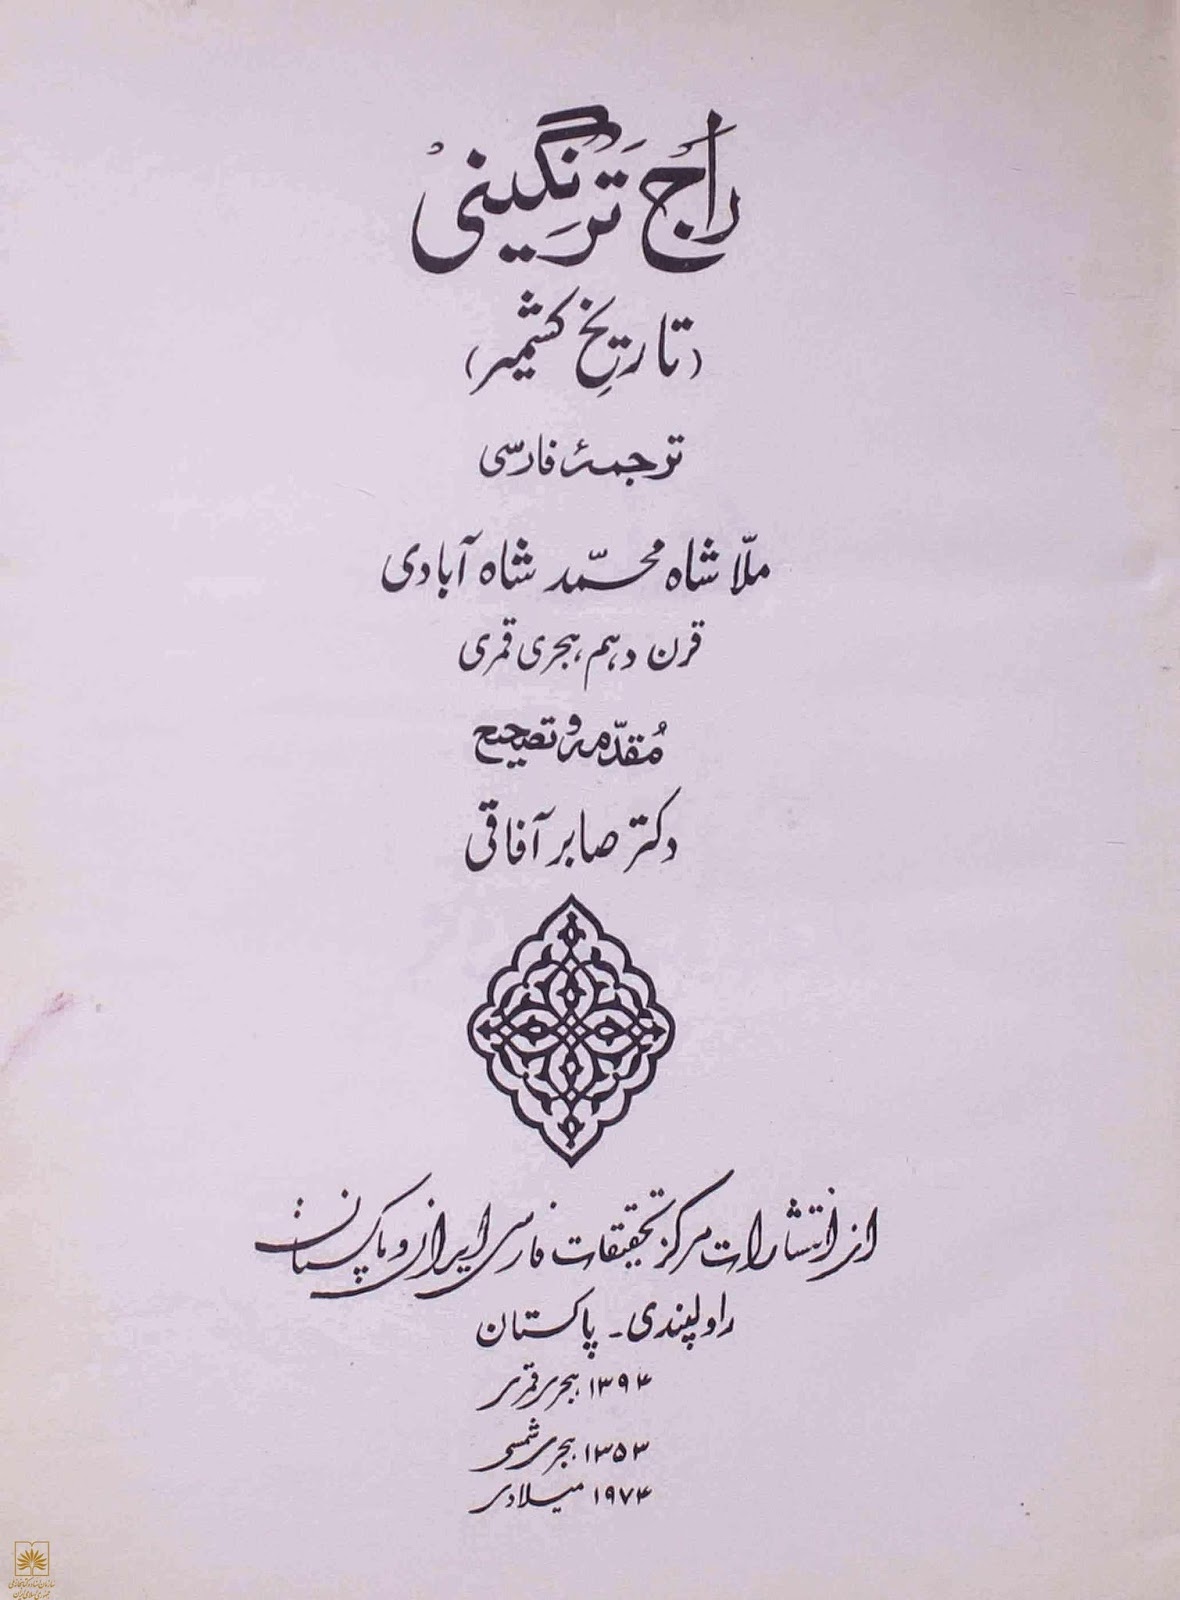 راجْ تَرَنگینیْ
(تاریخِ کشمیر)
ترجمۂ فارسی
ملّا شاه محمّد شاه آبادی
قرن دهم هجری قمری
مُقدّمه و تصحیح
دکتر صابر آفاقی
از انتشارات مرکز تحقیقات فارسی ایران و پاکستان
راولپندی - پاکستان
۱۳۹۴ هجری قمری
۱۳۵۳ هجری شمسی
۱۹۷۴ میلادی
سازمان اسناد و کتابخانه ملی
جمهوری اسلامی ایران